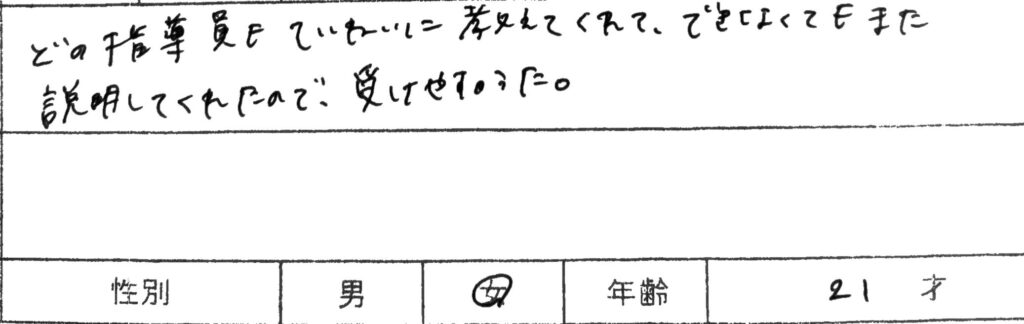 どの指導員もていねいに教えてくれて、できなくてもまた
説明してくれたので、受けやすかった。
性別 男 女 年齢 21 才